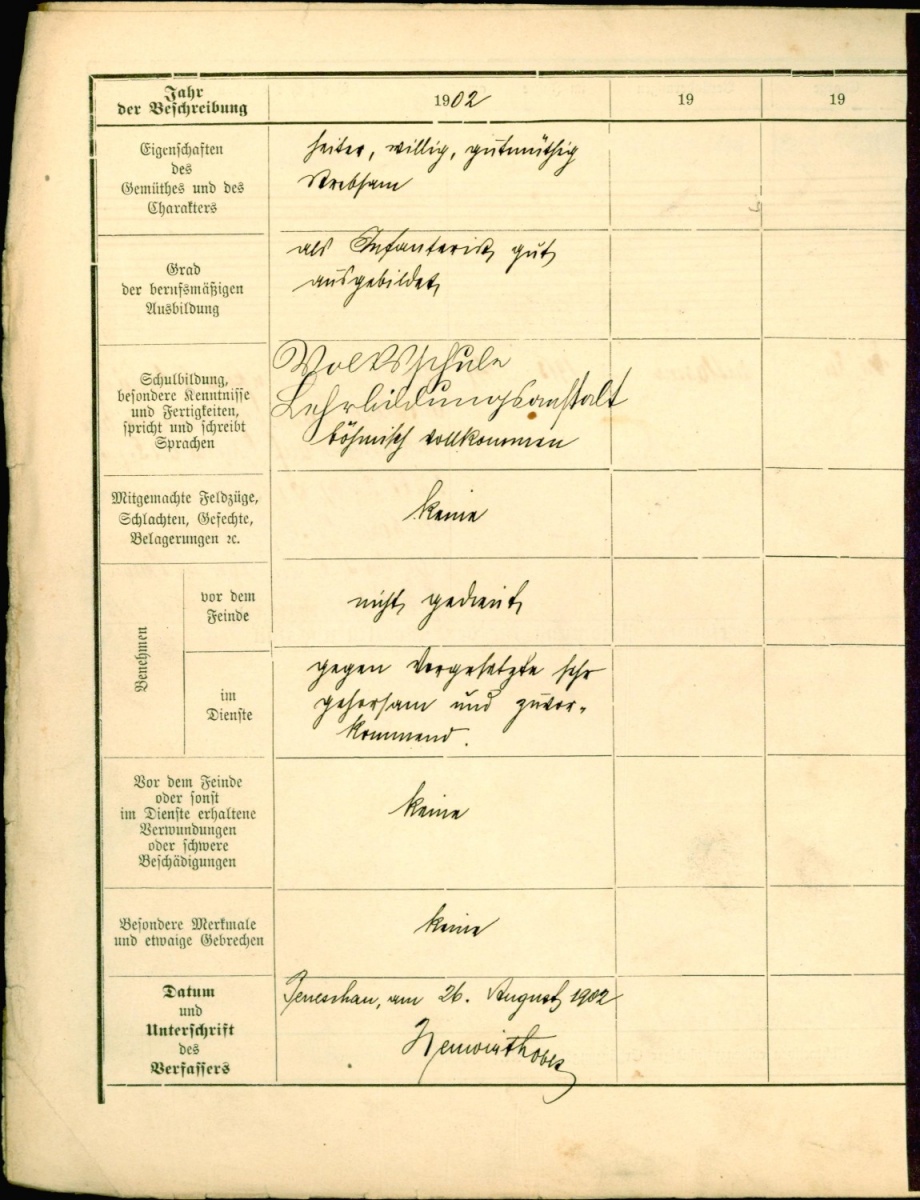 Jahr
der Beschreibung
1902
19
19
Eigenschaften
des
Gemüthes und des
Charakters
heiter, willig, gutmüthig
strebsam
Grad
der berufsmäßigen
Ausbildung
als Infanterist gut
ausgebildet
Schulbildung,
besondere Kenntnisse
und Fertigkeiten,
spricht und schreibt
Sprachen
Volksschule
Lehrbildungsanstalt
böhmisch vollkommen
Mitgemachte Feldzüge,
Schlachten, Gefechte,
Belagerungen ꝛc.
keine
Benehmen
vor dem
Feinde
nicht gedient
im
Dienste
gegen Vorgesetzte sehr
gehorsam und zuvor-
kommend.
Vor dem Feinde
oder sonst
im Dienste erhaltene
Verwundungen
oder schwere
Beschädigungen
keine
Besondere Merkmale
und etwaige Gebrechen
keine
Datum
und
Unterschrift
des
Verfassers
Beneschau, am 26. August 1902